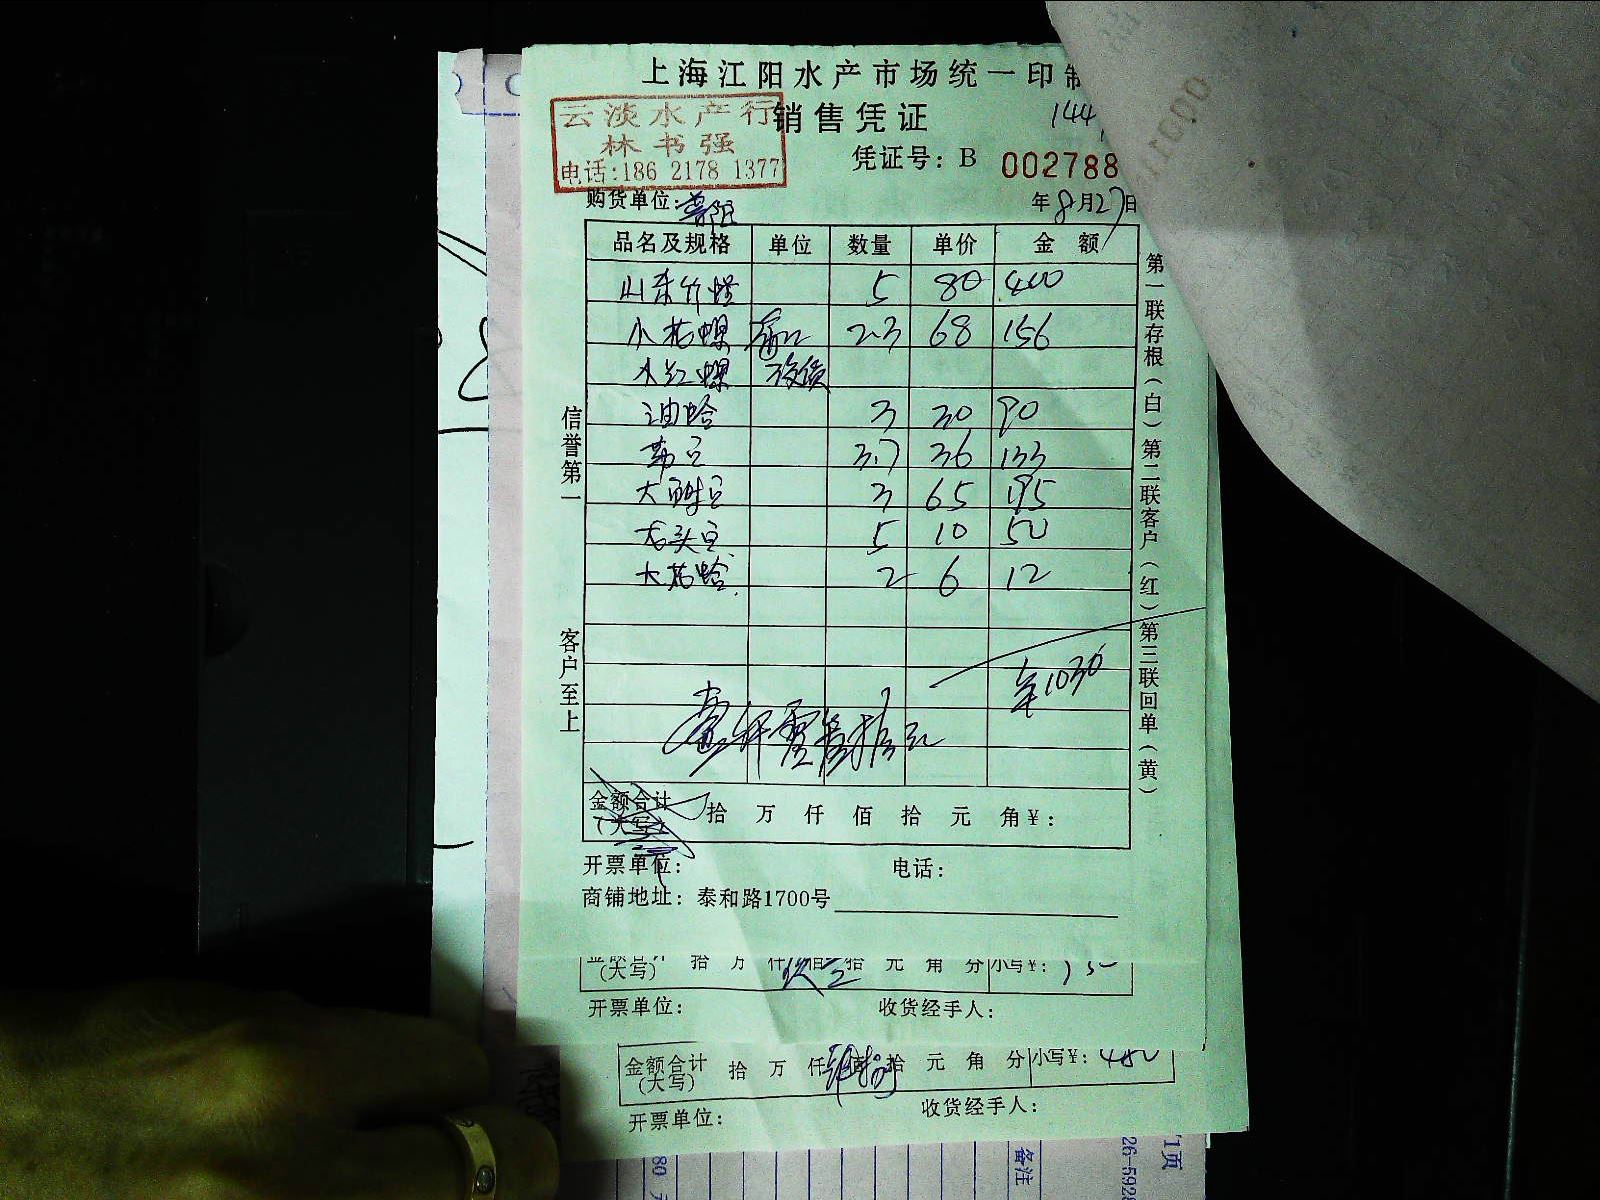 上海江阳水产市场统一印制
云淡水产行
销售凭证
144
林书强
凭证号：B 002788
电话:186 2178 1377
购货单位:
年8月27日
品名及规格 单位 数量 单价 金额
山东竹蛏 5 80 400
小花螺 2.3 68 156
小红螺 没货
油蛤 3 30 90
3.7 36 133
3 65 195
5 10 50
大花蛤 2 6 12
1030
壹仟零叁拾元
金额合计（大写） 拾 万 仟 佰 拾 元 角￥:
开票单位: 电话:
商铺地址: 泰和路1700号
信誉第一
客户至上
第一联存根(白) 第二联客户(红) 第三联回单(黄)
(大写) 拾 万 仟 佰 拾 元 角 分 小写￥:
开票单位: 收货经手人:
金额合计(大写) 拾 万 仟 佰 拾 元 角 分 小写￥: 480
开票单位: 收货经手人:
备注
1页
26-592
80